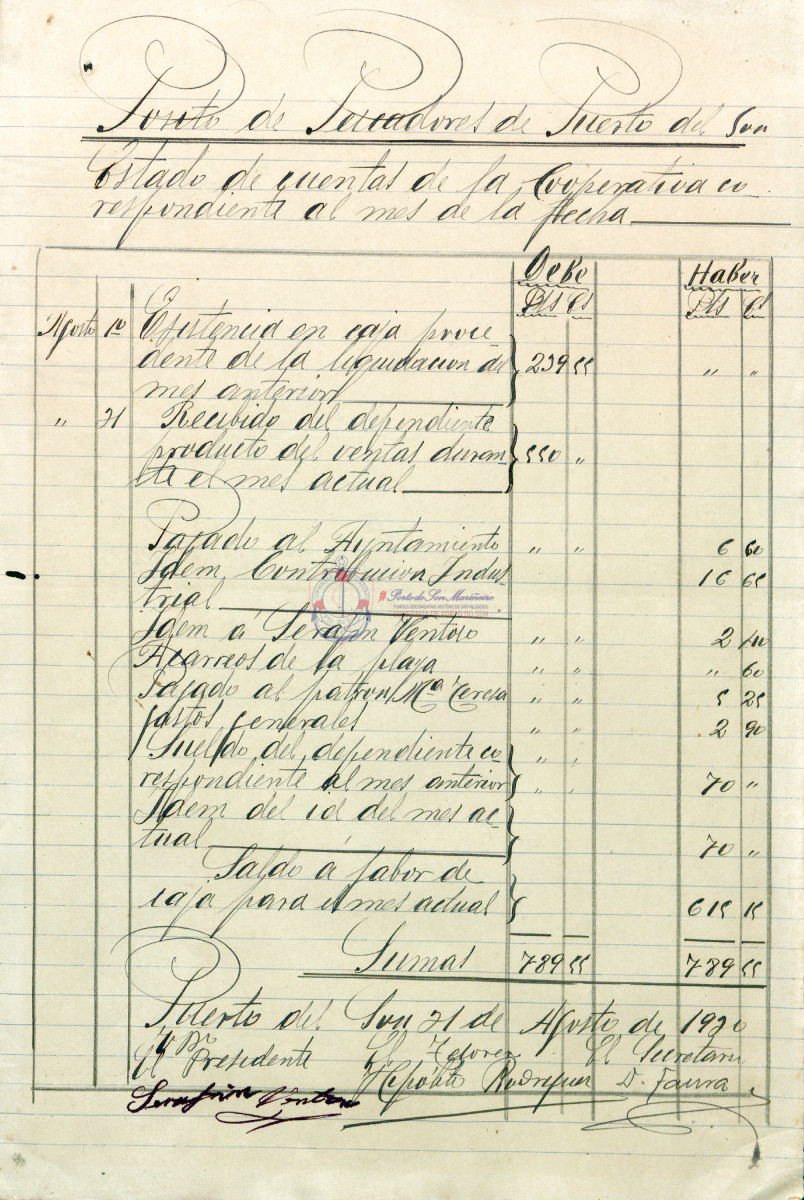 Posito de Pescadores de Puerto del Son
Estado de cuentas de la Cooperativa co
respondiente al mes de la fecha
Debe Haber
Pts Cs Pts Cs
Agosto 1º Esistencia en caja proce-
dente de la liquidacion del 239 55 " "
mes anterior
" 31 Recibido del dependiente
producto del ventas duran- 550 "
te el mes actual
Pagado al Ayuntamiento " " 6 60
Idem Contribucion Indus- 16 65
trial
Porto do Son Mariñeiro
Idem á Serafin Ventoso " " 2 40
Acarreos de la plaza " " " 60
Pagado al patron Mª Teresa " " 5 25
gastos generales " " 2 90
Sueldo del dependiente co " "
respondiente al mes anterior " " 70 "
Idem del id del mes ac-
tual 70 "
Saldo á fabor de
caja para el mes actual 615 15
Sumas 789 55 789 55
Puerto del Son 31 de Agosto de 1930
El Presidente El Tesorero El Secretario
Serafin Ventoso Hipolito Rodriguez D. Faura